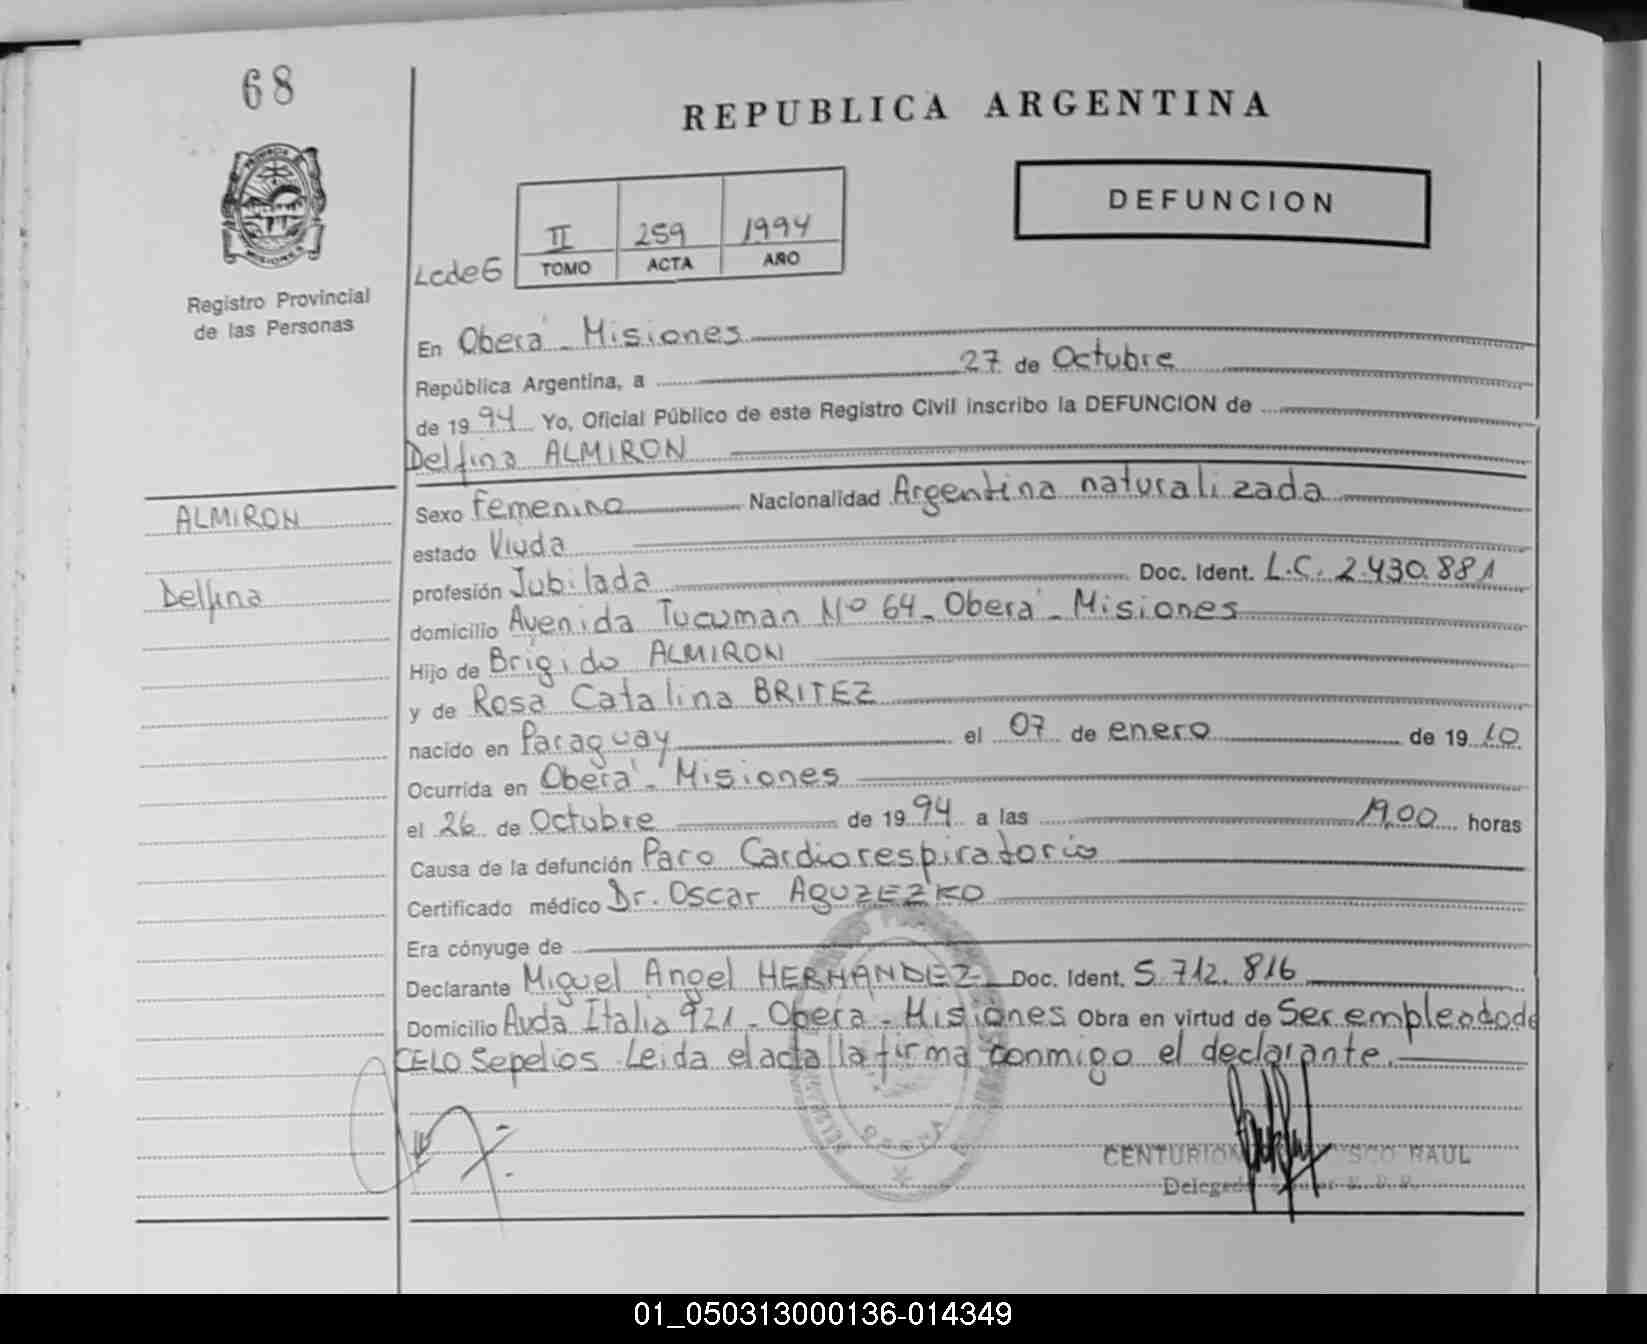 68
REPUBLICA ARGENTINA
DEFUNCION
II 259 1994
TOMO ACTA AÑO
Registro Provincial
de las Personas
En Oberá - Misiones
República Argentina, a 27 de Octubre
de 1994 Yo, Oficial Público de este Registro Civil inscribo la DEFUNCION de
Delfina ALMIRON
ALMIRON
Delfina
Sexo Femenino Nacionalidad Argentina naturalizada
estado Viuda
profesión Jubilada Doc. Ident. L.C. 2.430.881
domicilio Avenida Tucuman Nº 64 - Oberá - Misiones
Hijo de Brigido ALMIRON
y de Rosa Catalina BRITEZ
nacido en Paraguay el 07 de enero de 1910
Ocurrida en Oberá - Misiones
el 26 de Octubre de 1994 a las 19,00 horas
Causa de la defunción Paro Cardiorespiratorio
Certificado médico Dr. Oscar AGUZEZKO
Era cónyuge de
Declarante Miguel Angel HERNANDEZ Doc. Ident. 5.712.816
Domicilio Avda Italia 921 - Oberá - Misiones Obra en virtud de Ser empleado de
CELO Sepelios. Leida el acta la firma conmigo el declarante.
CENTURION RAUL
01_050313000136-014349